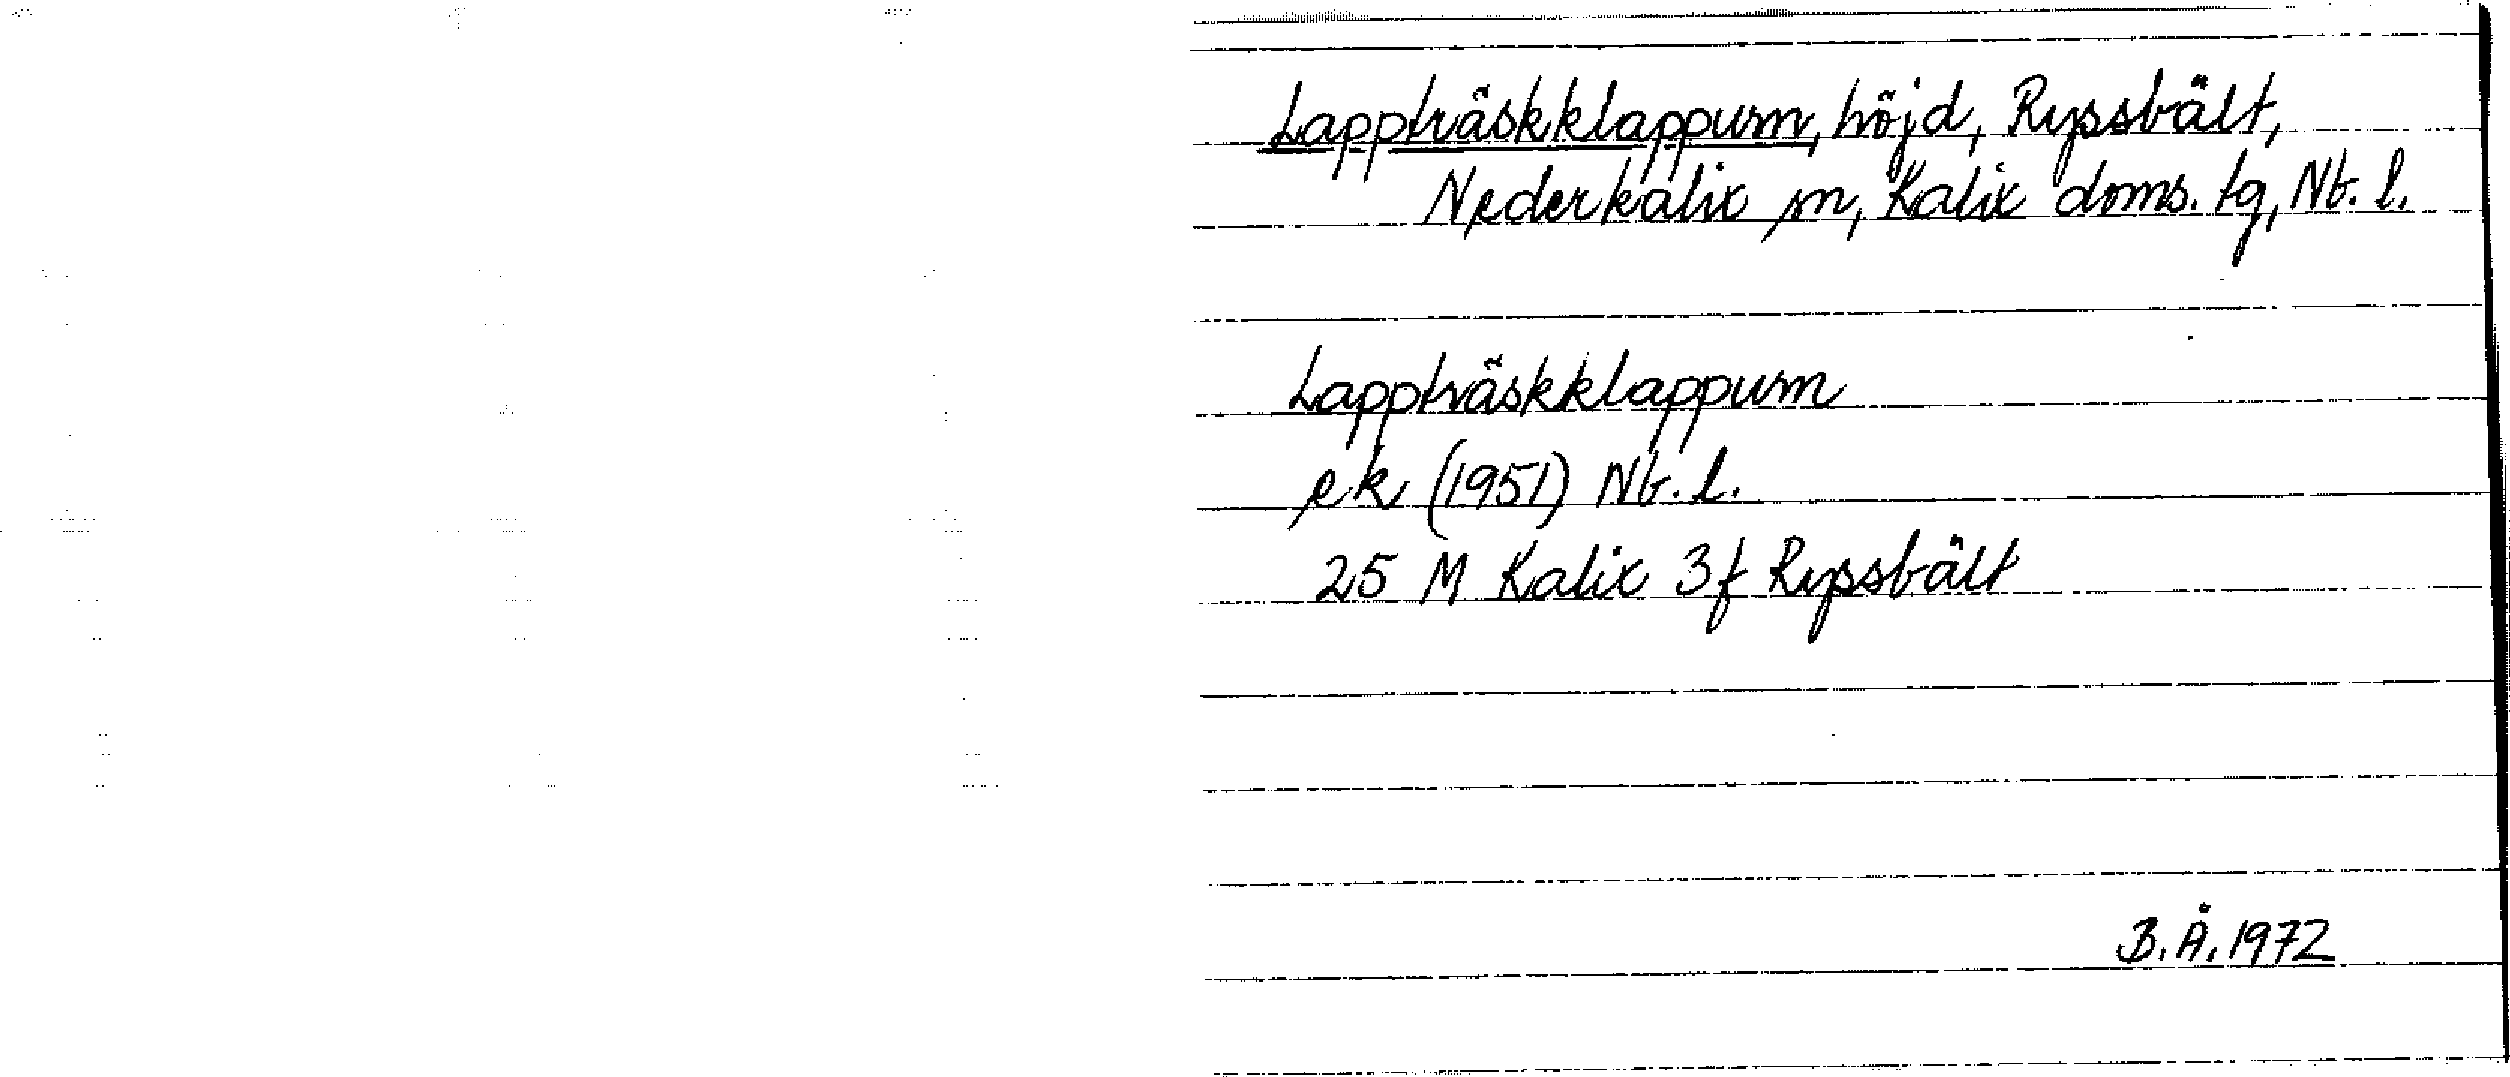 Lappträskklappum, höjd, Ryssbält,
Nederkalix sn, Kalix doms. tg, Nb. l.
Lappträskklappum
ek (1951) Nb. l.
25 M Kalix 3f Ryssbält
B. Å. 1972